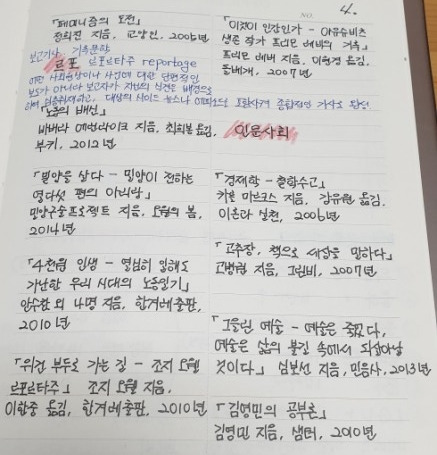 「페미니즘의 도전」
정희진 지음, 교양인, 2005년
보고기사, 기록문학
르포 르포르타주 reportage
어떤 사회현상이나 사건에 대한 단편적인
보도가 아니라 보고자가 자신의 식견을 배경으로
하여 심층취재하고, 대상의 사이드 뉴스나 에피소드를 포함시켜 종합적인 기사로 완성
「노동의 배신」
바버라 에런라이크 지음, 최희봉 옮김,
부키, 2012년
「밀양을 살다 - 밀양이 전하는
열다섯 편의 아리랑」
밀양구술프로젝트 지음, 오월의 봄,
2014년
「4천원 인생 - 열심히 일해도
가난한 우리 시대의 노동일기」
안수찬 외 4명 지음, 한겨레출판,
2010년
「위건 부두로 가는 길 - 조지 오웰
르포르타주」 조지 오웰 지음,
이한중 옮김, 한겨레출판, 2010년
NO.
4.
「이것이 인간인가 - 아우슈비츠
생존 작가 프리모 레비의 기록」
프리모 레비 지음, 이현경 옮김,
돌베개, 2007년
인문사회
「경제학 - 철학수고」
카를 마르크스 지음, 강유원 옮김,
이론과 실천, 2006년
「고추장, 책으로 세상을 말하다」
고병권 지음, 그린비, 2007년
「그을린 예술 - 예술은 죽었다,
예술은 삶의 불길 속에서 되살아날
것이다」 심보선 지음, 민음사, 2013년
「김영민의 공부론」
김영민 지음, 샘터, 2010년